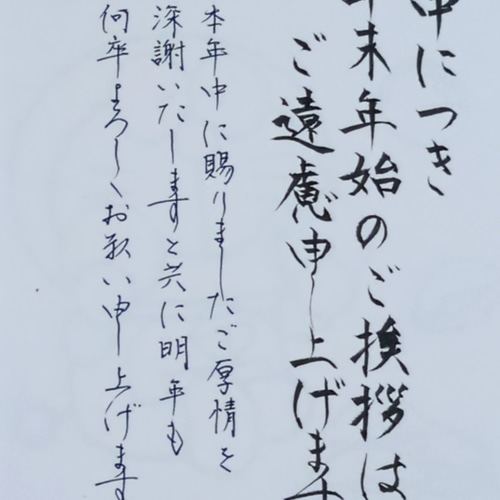 中につき
年末年始のご挨拶は
ご遠慮申し上げます
本年中に賜りましたご厚情を
深謝いたしますと共に明年も
何卒よろしくお願い申し上げます